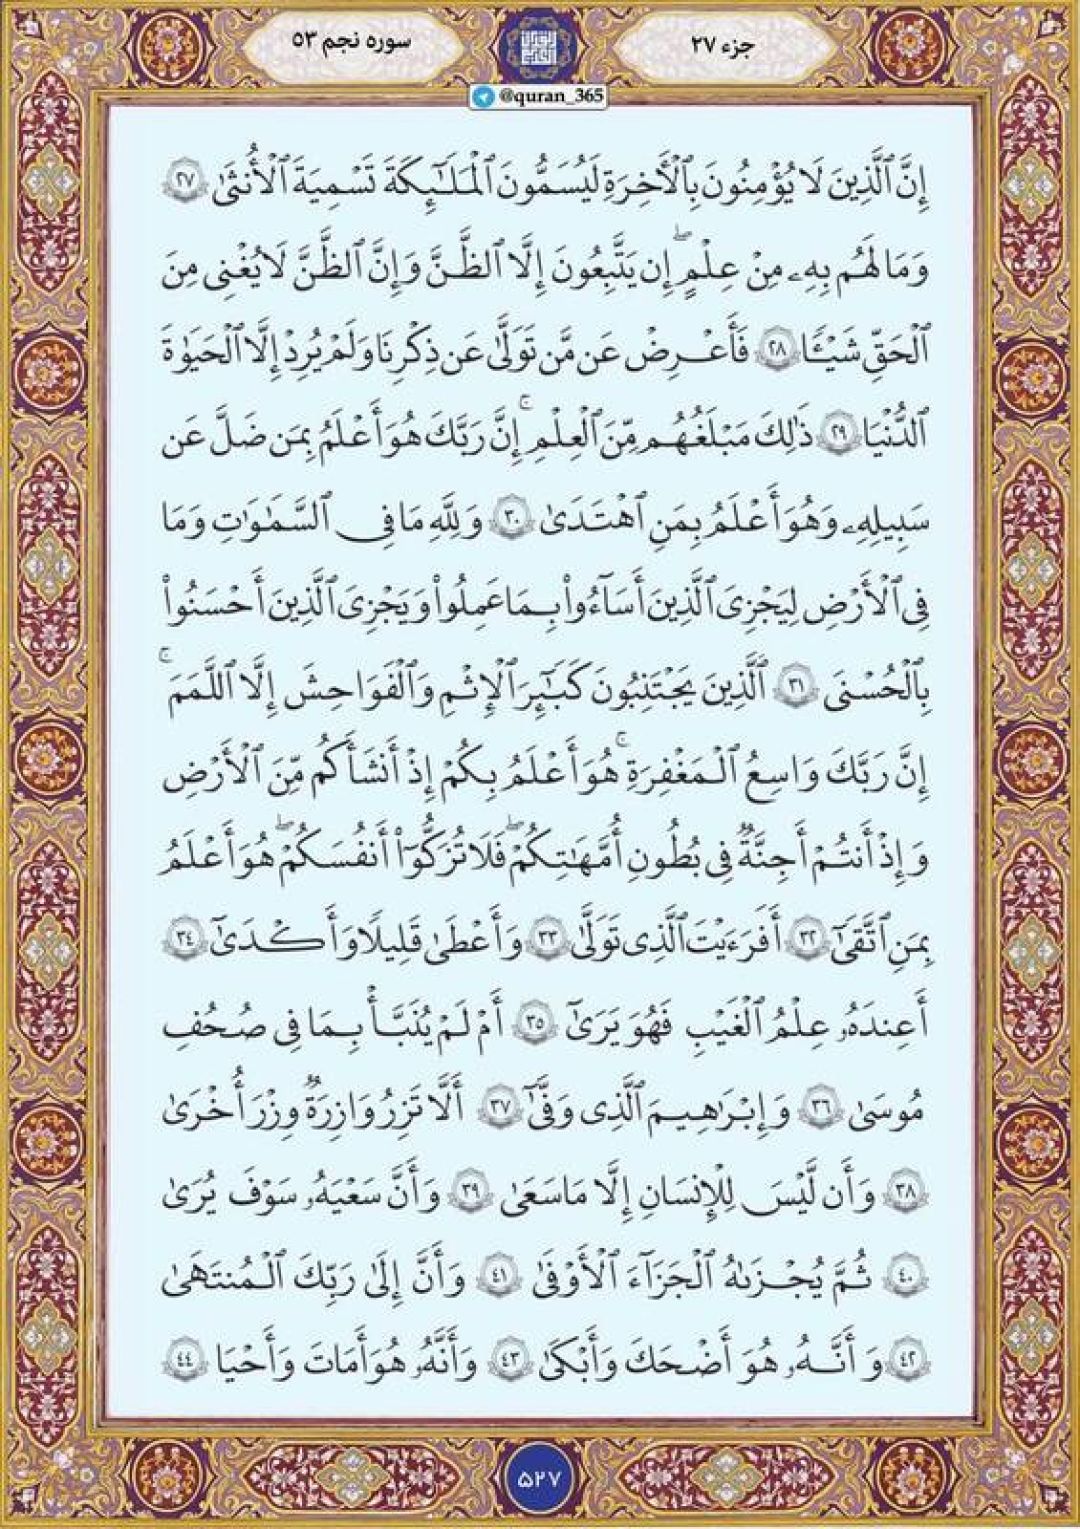 جزء ۲۷
سوره نجم ۵۳
@quran_365
إِنَّ ٱلَّذِينَ لَا يُؤْمِنُونَ بِٱلْأَخِرَةِ لَيُسَمُّونَ ٱلْمَلَٰٓئِكَةَ تَسْمِيَةَ ٱلْأُنثَىٰ ٢٧
وَمَا لَهُم بِهِۦ مِنْ عِلْمٍ ۖ إِن يَتَّبِعُونَ إِلَّا ٱلظَّنَّ وَإِنَّ ٱلظَّنَّ لَا يُغْنِى مِنَ
ٱلْحَقِّ شَيْـًٔا ٢٨ فَأَعْرِضْ عَن مَّن تَوَلَّىٰ عَن ذِكْرِنَا وَلَمْ يُرِدْ إِلَّا ٱلْحَيَوٰةَ
ٱلدُّنْيَا ٢٩ ذَٰلِكَ مَبْلَغُهُم مِّنَ ٱلْعِلْمِ ۚ إِنَّ رَبَّكَ هُوَ أَعْلَمُ بِمَن ضَلَّ عَن
سَبِيلِهِۦ وَهُوَ أَعْلَمُ بِمَنِ ٱهْتَدَىٰ ٣٠ وَلِلَّهِ مَا فِى ٱلسَّمَٰوَٰتِ وَمَا
فِى ٱلْأَرْضِ لِيَجْزِىَ ٱلَّذِينَ أَسَٰٓـُٔوا۟ بِمَا عَمِلُوا۟ وَيَجْزِىَ ٱلَّذِينَ أَحْسَنُوا۟
بِٱلْحُسْنَى ٣١ ٱلَّذِينَ يَجْتَنِبُونَ كَبَٰٓئِرَ ٱلْإِثْمِ وَٱلْفَوَٰحِشَ إِلَّا ٱللَّمَمَ ۚ
إِنَّ رَبَّكَ وَٰسِعُ ٱلْمَغْفِرَةِ ۚ هُوَ أَعْلَمُ بِكُمْ إِذْ أَنشَأَكُم مِّنَ ٱلْأَرْضِ
وَإِذْ أَنتُمْ أَجِنَّةٌ فِى بُطُونِ أُمَّهَٰتِكُمْ ۖ فَلَا تُزَكُّوٓا۟ أَنفُسَكُمْ ۖ هُوَ أَعْلَمُ
بِمَنِ ٱتَّقَىٰٓ ٣٢ أَفَرَءَيْتَ ٱلَّذِى تَوَلَّىٰ ٣٣ وَأَعْطَىٰ قَلِيلًا وَأَكْدَىٰٓ ٣٤
أَعِندَهُۥ عِلْمُ ٱلْغَيْبِ فَهُوَ يَرَىٰٓ ٣٥ أَمْ لَمْ يُنَبَّأْ بِمَا فِى صُحُفِ
مُوسَىٰ ٣٦ وَإِبْرَٰهِيمَ ٱلَّذِى وَفَّىٰٓ ٣٧ أَلَّا تَزِرُ وَازِرَةٌ وِزْرَ أُخْرَىٰ
٣٨ وَأَن لَّيْسَ لِلْإِنسَٰنِ إِلَّا مَا سَعَىٰ ٣٩ وَأَنَّ سَعْيَهُۥ سَوْفَ يُرَىٰ
٤٠ ثُمَّ يُجْزَىٰهُ ٱلْجَزَآءَ ٱلْأَوْفَىٰ ٤١ وَأَنَّ إِلَىٰ رَبِّكَ ٱلْمُنتَهَىٰ
٤٢ وَأَنَّهُۥ هُوَ أَضْحَكَ وَأَبْكَىٰ ٤٣ وَأَنَّهُۥ هُوَ أَمَاتَ وَأَحْيَا ٤٤
۵۲۷